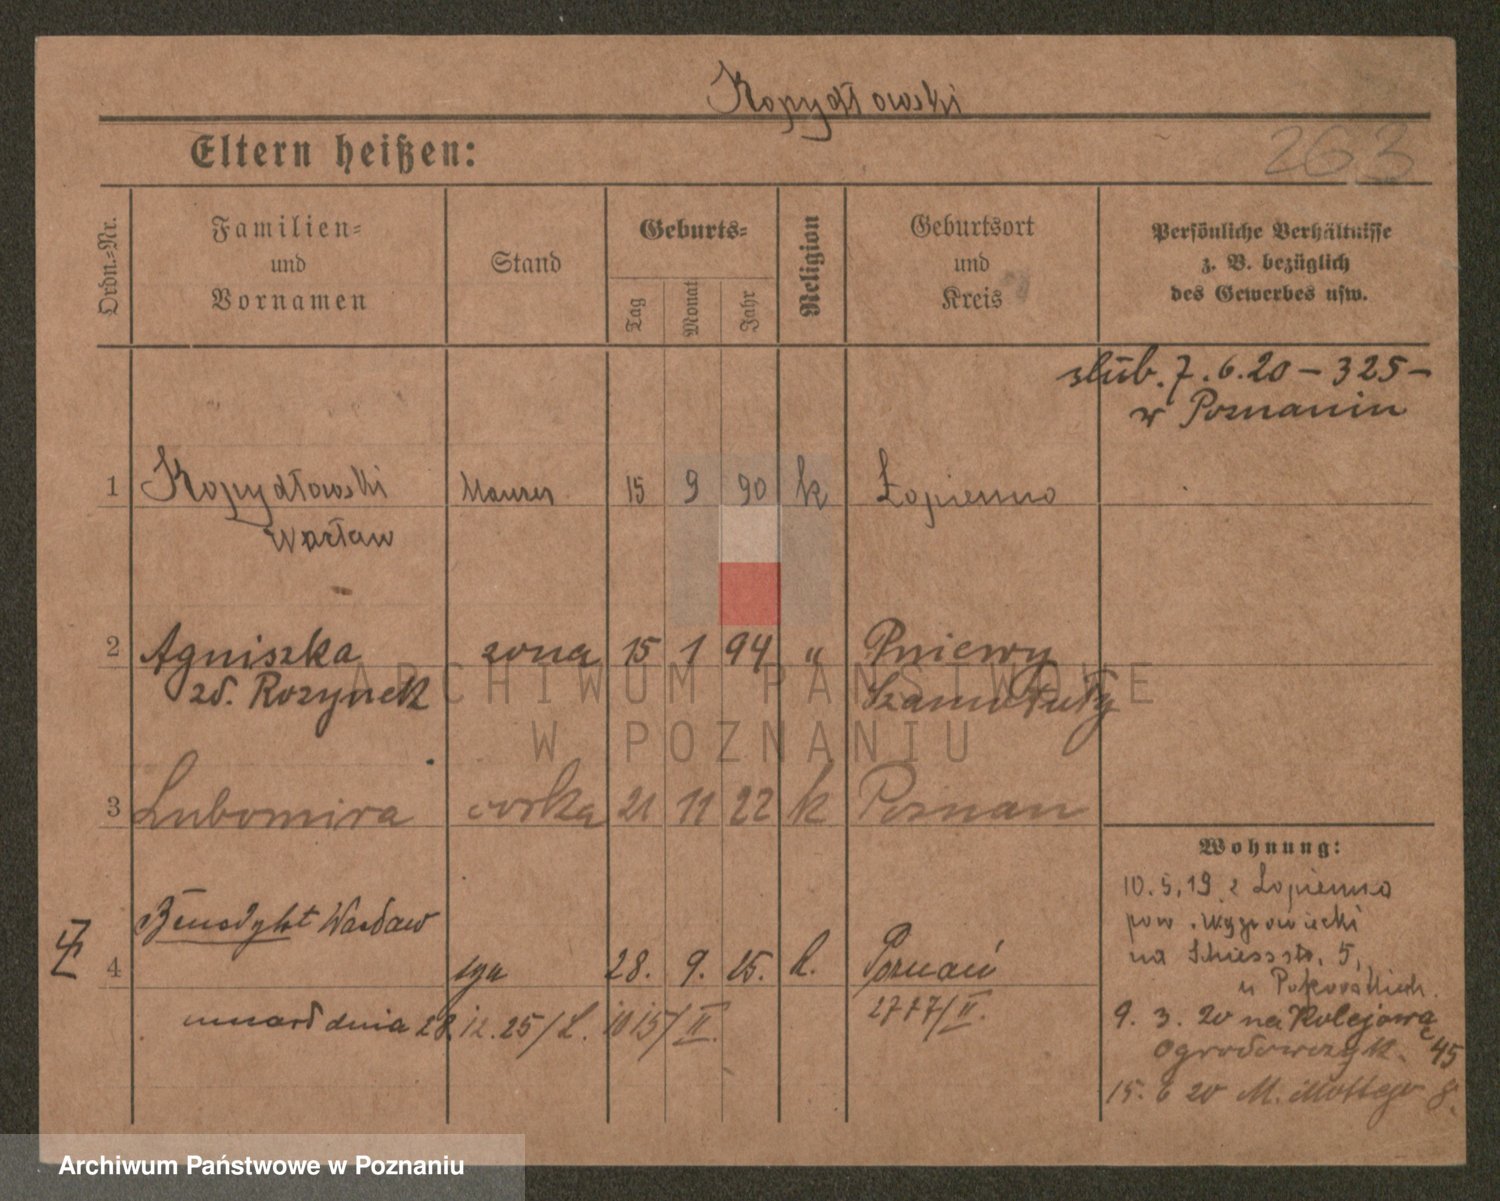 Kopydłowski
Eltern heißen:
263
Ordn.-Nr.
Familien- und Vornamen
Stand
Geburts-
Tag
Monat
Jahr
Religion
Geburtsort und Kreis
Persönliche Verhältnisse z. B. bezüglich des Gewerbes usw.
ślub. 7.6.20 – 325 –
w Poznaniu
1 Kopydłowski Maurer 15 9 90 k Łopienno
Wacław
2 Agniszka żona 15 1 94 " Pniewy
zd. Rozynek Szamotuły
3 Lubomira córka 21 11 22 k Poznań
Benedykt Wacław
4 syn 28. 9. 25. k. Poznań
umarł dnia 28.12.25/L. 1015/II. 2777/II.
Wohnung:
10.5.19 z Łopienno
pow. Wągrowiecki
na Schiessstr. 5,
u
9. 3. 20 na Kolejową 45
Ogrodowczyk.
15. 6 20 M. Mottego 8.
ARCHIWUM PAŃSTWOWE
W POZNANIU
Archiwum Państwowe w Poznaniu